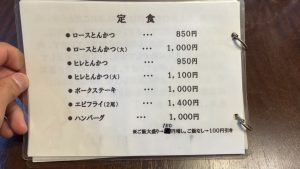 定食
●ロースとんかつ … 850円
●ロースとんかつ(大) … 1,000円
●ヒレとんかつ … 950円
●ヒレとんかつ(大) … 1,100円
●ポークステーキ … 1,000円
●エビフライ(2尾) … 1,400円
●ハンバーグ … 1,000円
※ご飯大盛り→ 円増し、ご飯なし→100円引き